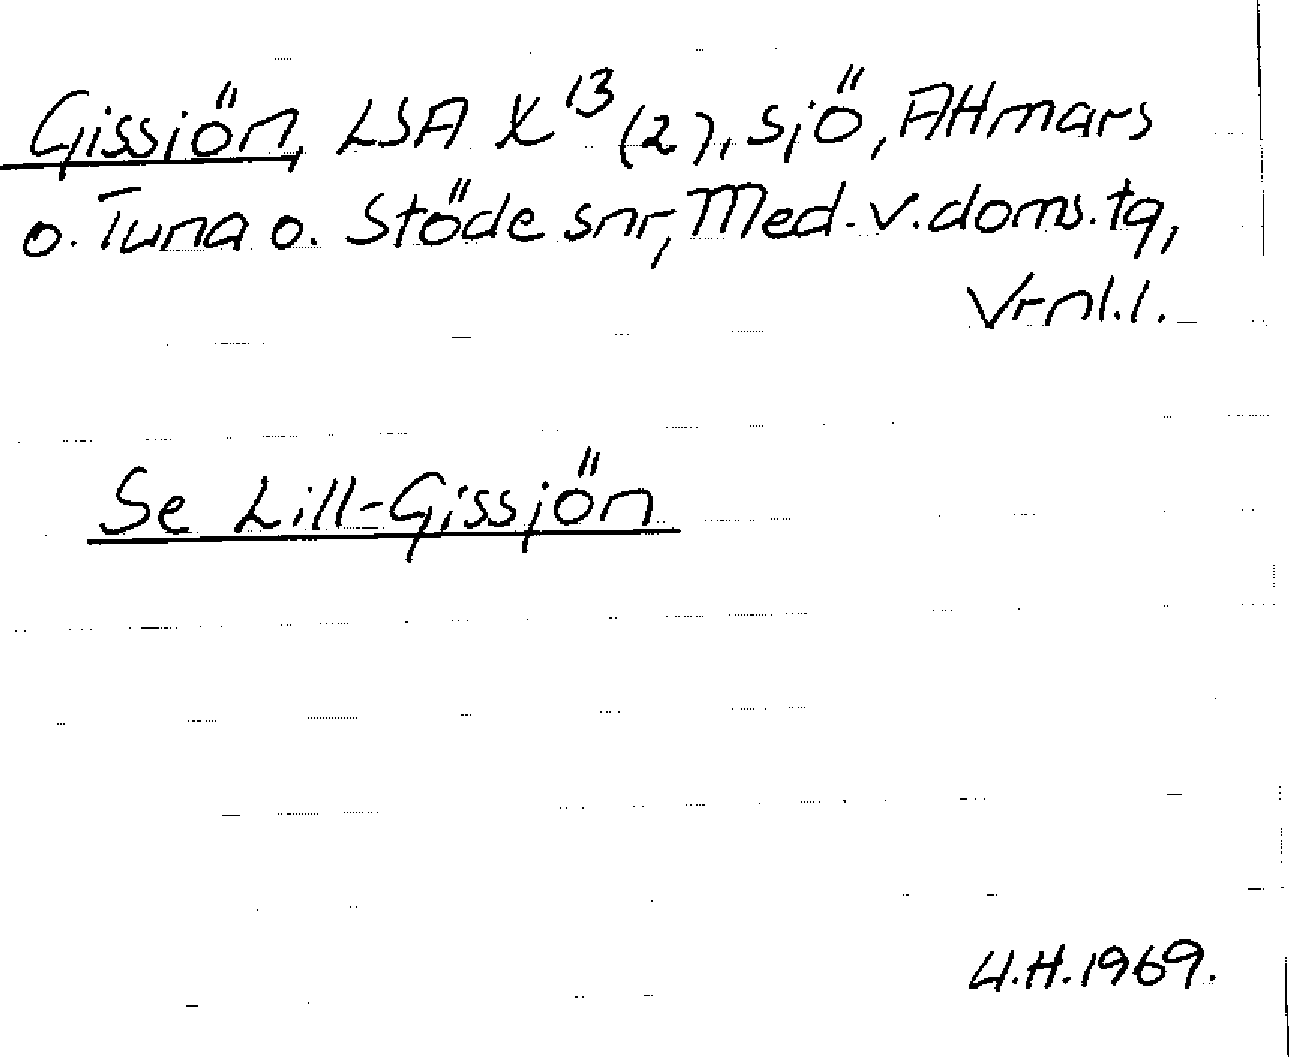 Gissjön, LSA X 13 (2), sjö, Attmars
o. Tuna o. Stöde snr, Med. v. doms. tg,
Vrnl. l.
Se Lill-Gissjön
U.H. 1969.